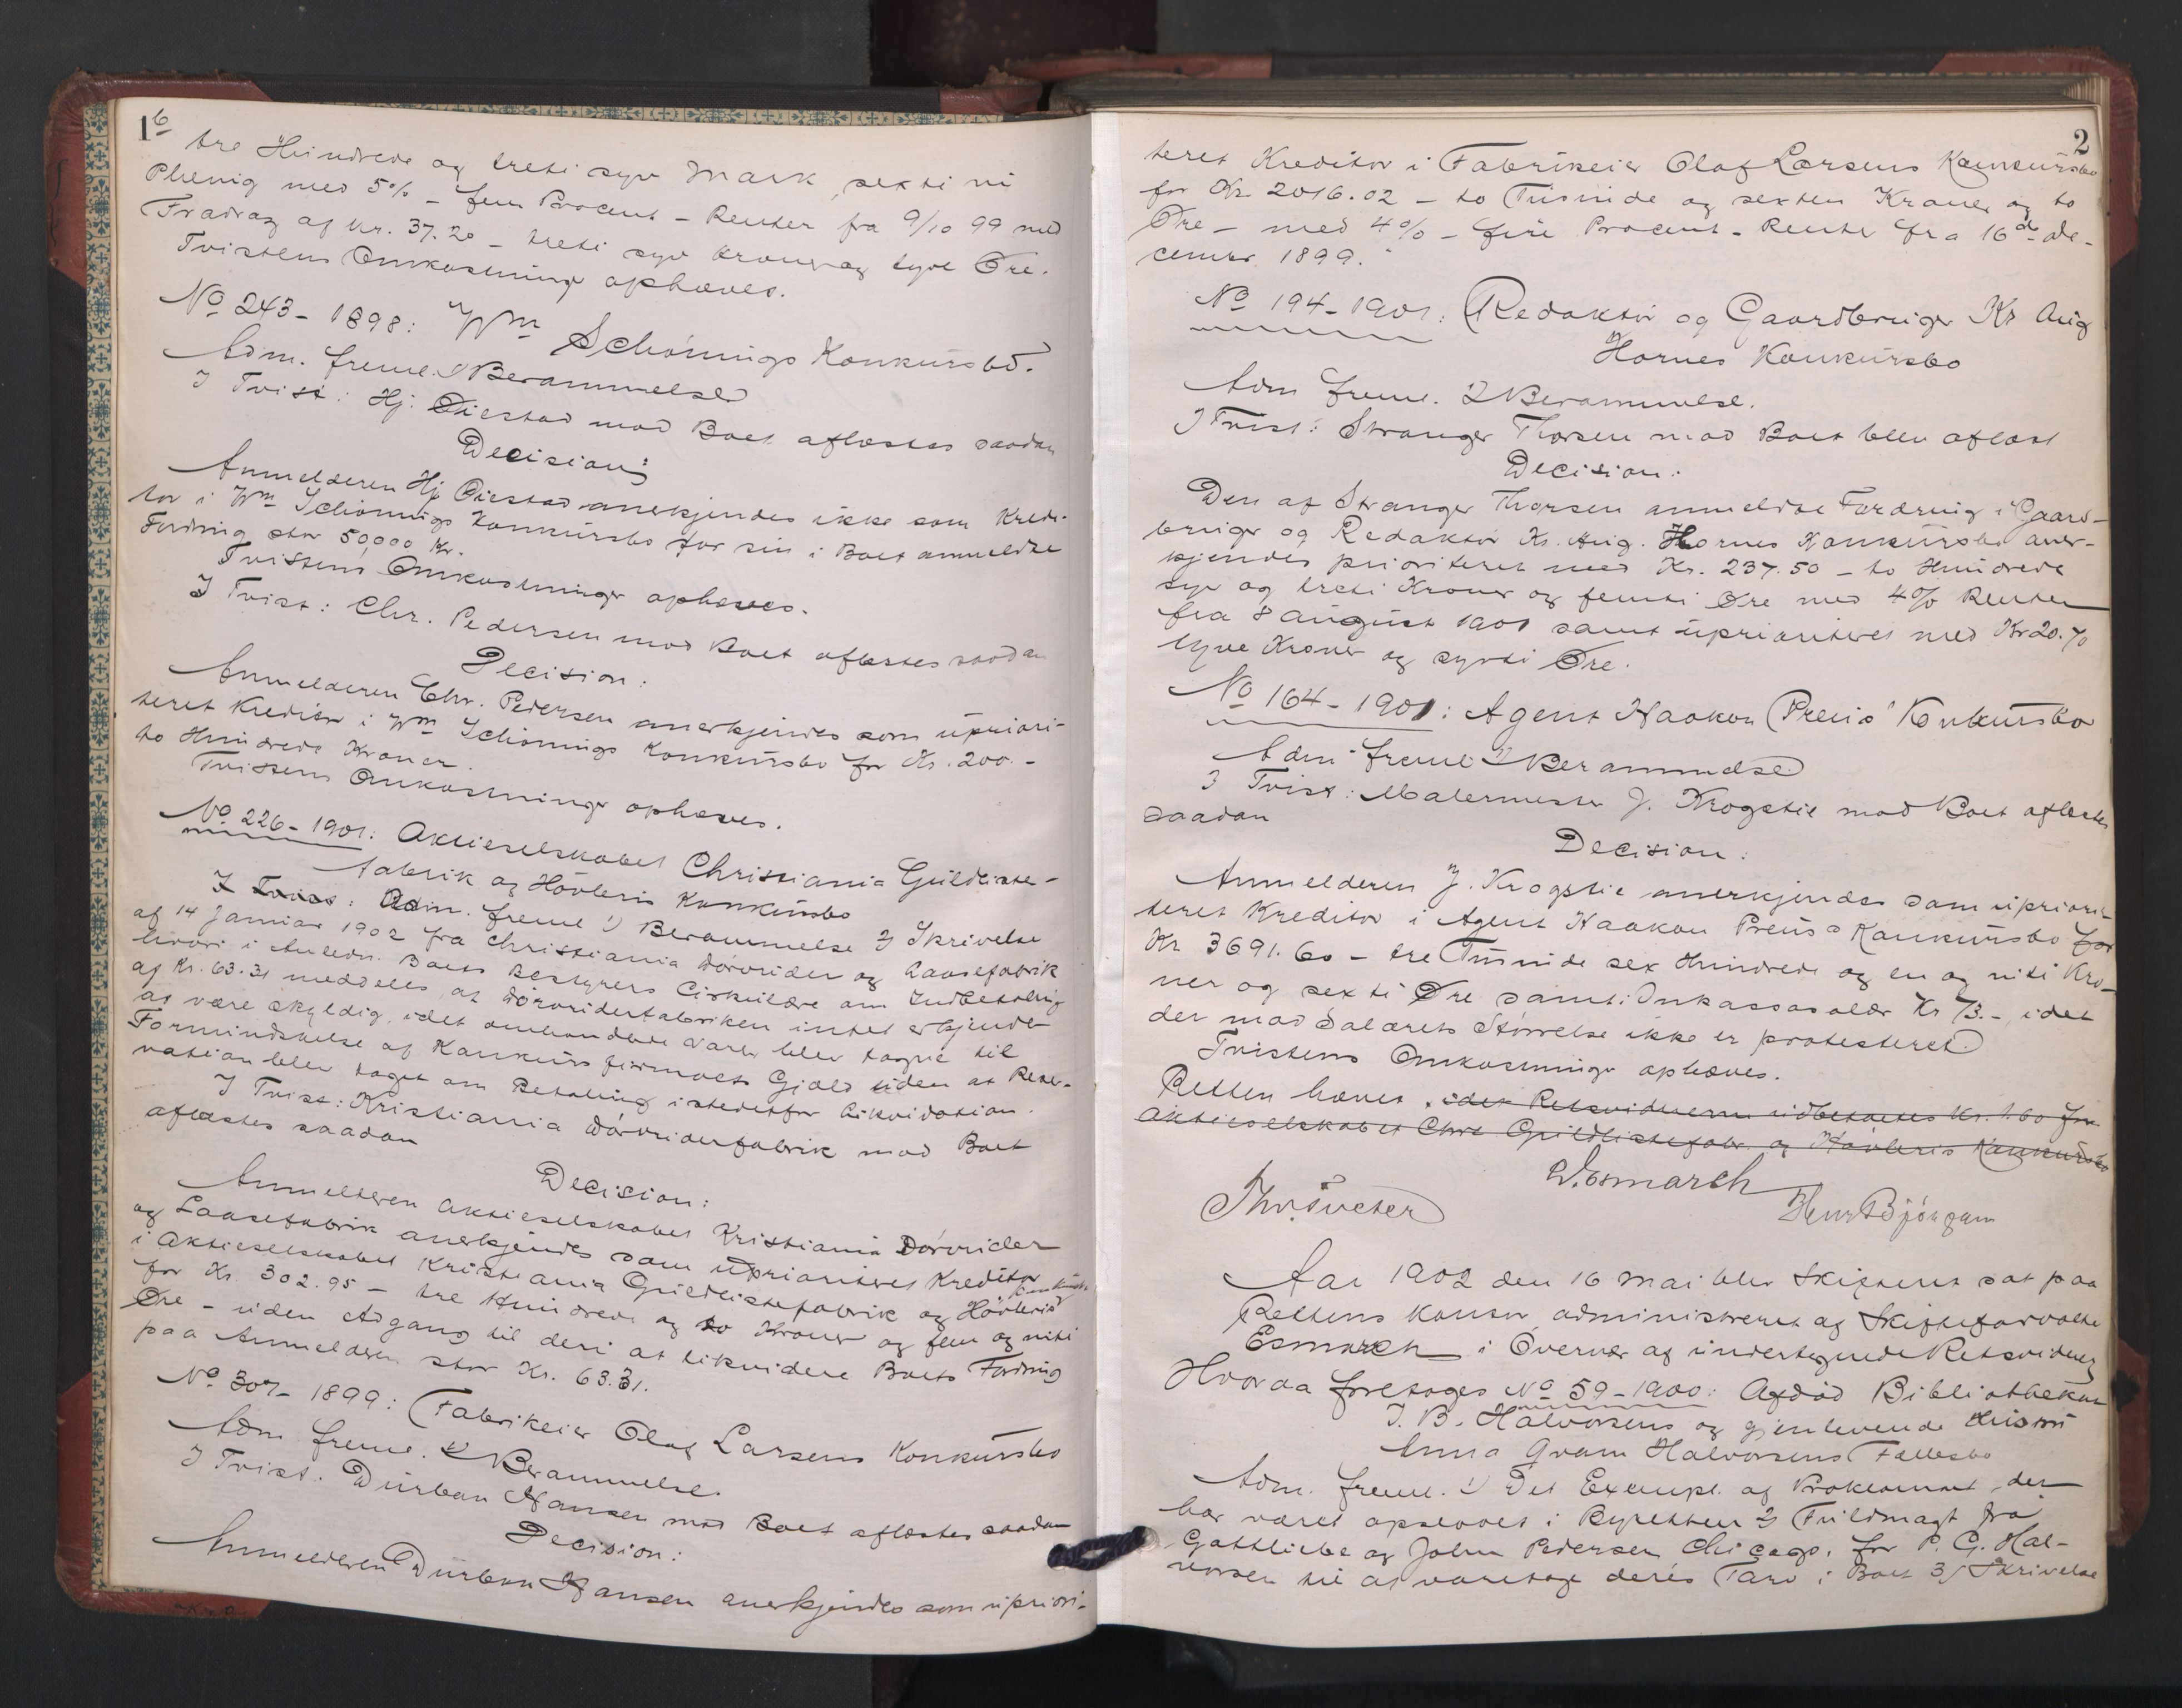 1b
tre Hundrede og treti syv Mark, sexti ni
Phenig med 5% – fem Procent – Renter fra 9/10 99 med
Fradrag af Kr. 37.20 – treti syv Kroner og tyve Øre.
Tvistens Omkostninger ophæves.
No 243 – 1898: Wm Schönnings Konkursbo.
Adm. freml. 1) Berammelse
I Tvist: Hj. Øiestad mod Boet aflæstes saadan
Decision:
Anmelderen Hj. Øiestad anerkjendes ikke som Kredi-
tor i Wm Schönnings Konkursbo for sin i Boet anmeldte
Fordring stor 50,000 Kr.
Tvistens Omkostninger ophæves.
I Tvist: Chr. Pedersen mod Boet aflæstes saadan
Decision:
Anmelderen Chr. Pedersen anerkjendes som upriori-
teret Kreditor i Wm Schönnings Konkursbo for Kr. 200.–
to Hundrede Kroner.
Tvistens Omkostninger ophæves.
No 226 – 1901: Aktieselskabet Christiania Guldliste-
fabrik og Høvleris Konkursbo
I Tvist: Adm. freml 1) Berammelse 2) Skrivelse
af 14 Januar 1902 fra Christiania Dørvrider og Laasefabrik
hvori i Anledn. Boets Bestyrers Cirkulære om Indbetaling
af Kr. 63.31 meddeles, at Dørvriderfabriken intet erkjender
at være skyldig, idet omhandlede Varer blev tagne til
Formindskelse af Konkursfirmaets Gjæld uden at Reser-
vation blev taget om Betaling istedetfor Likvidation.
I Tvist: Kristiania Dørvriderfabrik mod Boet
aflæstes saadan
Decision:
Anmelderen Aktieselskabet Kristiania Dørvrider
og Laasefabrik anerkjendes som uprioriteret Kreditor
i Aktieselskabet Kristiania Guldlistefabrik og Høvleris Konkursbo
for Kr. 302.95 – tre Hundrede og to Kroner og fem og niti
Øre – uden Adgang til deri at likvidere Boets Fordring
paa Anmelderen stor Kr. 63.31.
No 307 – 1899: Fabrikeier Olaf Larsens Konkursbo
Adm. freml. 1) Berammelse.
I Tvist: Durban Hansen mod Boet aflæstes saadan
Decision:
Anmelderen Durban Hansen anerkjendes som upriori-
2
teret Kreditor i Fabrikeier Olaf Larsens Konkursbo
for Kr. 2016.02 – to Tusinde og sexten Kroner og to
Øre – med 4% – fire Procent – Rente fra 16de De-
cember 1899.
No 194 – 1901: Redaktør og Gaardbruger Kr Aug
Hornes Konkursbo
Adm freml. 1) Berammelse.
I Tvist: Stranger Thorsen mod Boet blev aflæst
Decision:
Den af Stranger Thorsen anmeldte Fordring i Gaard-
bruger og Redaktør Kr. Aug. Hornes Konkursbo aner-
kjendes prioriteret med Kr. 237.50 – to Hundrede
syv og treti Kroner og femti Øre med 4% Renter
fra 8 August 1901 samt uprioriteret med Kr 20.70
tyve Kroner og sytti Øre.
No 164 – 1901: Agent Haakon Preus' Konkursbo
Adm freml 1) Berammelse
I Tvist: Malermester J. Krogstie mod Boet aflæstes
saadan
Decision:
Anmelderen J. Krogstie anerkjendes som upriori-
teret Kreditor i Agent Haakon Preus' Konkursbo for
Kr 3691.60 – tre Tusinde sex Hundrede og en og niti Kro-
ner og sexti Øre samt Inkassosalær Kr 73.–, idet
der mod Salærets Størrelse ikke er protesteret.
Tvistens Omkostninger ophæves.
Retten hævet, idet Retsvidnerne udbetaltes Kr. 1.60 for
Aktieselskabet Chra Guldlistefabr. og Høvleris Konkursbo
Esmarch
Thv. Tveter
Henr Bjørgum
Aar 1902 den 16 Mai blev Skifteret sat paa
Rettens Kontor administreret af Skifteforvalter
Esmarch i Overvær af undertegnede Retsvidner
Hvorda foretoges No 59 – 1900: Afdød Bibliothekar
J. B. Halvorsens og gjenlevende Hustru
Anna Gram Halvorsens Fællesbo
Adm. freml. 1) Det Exempl. af Proklamat der
har været opslaaet i Byretten 2) Fuldmagt fra
Gottliebe og John Pedersen, Chicago, for P. G. Hal-
vorsen til at varetage deres Tarv i Boet 3) Skrivelse